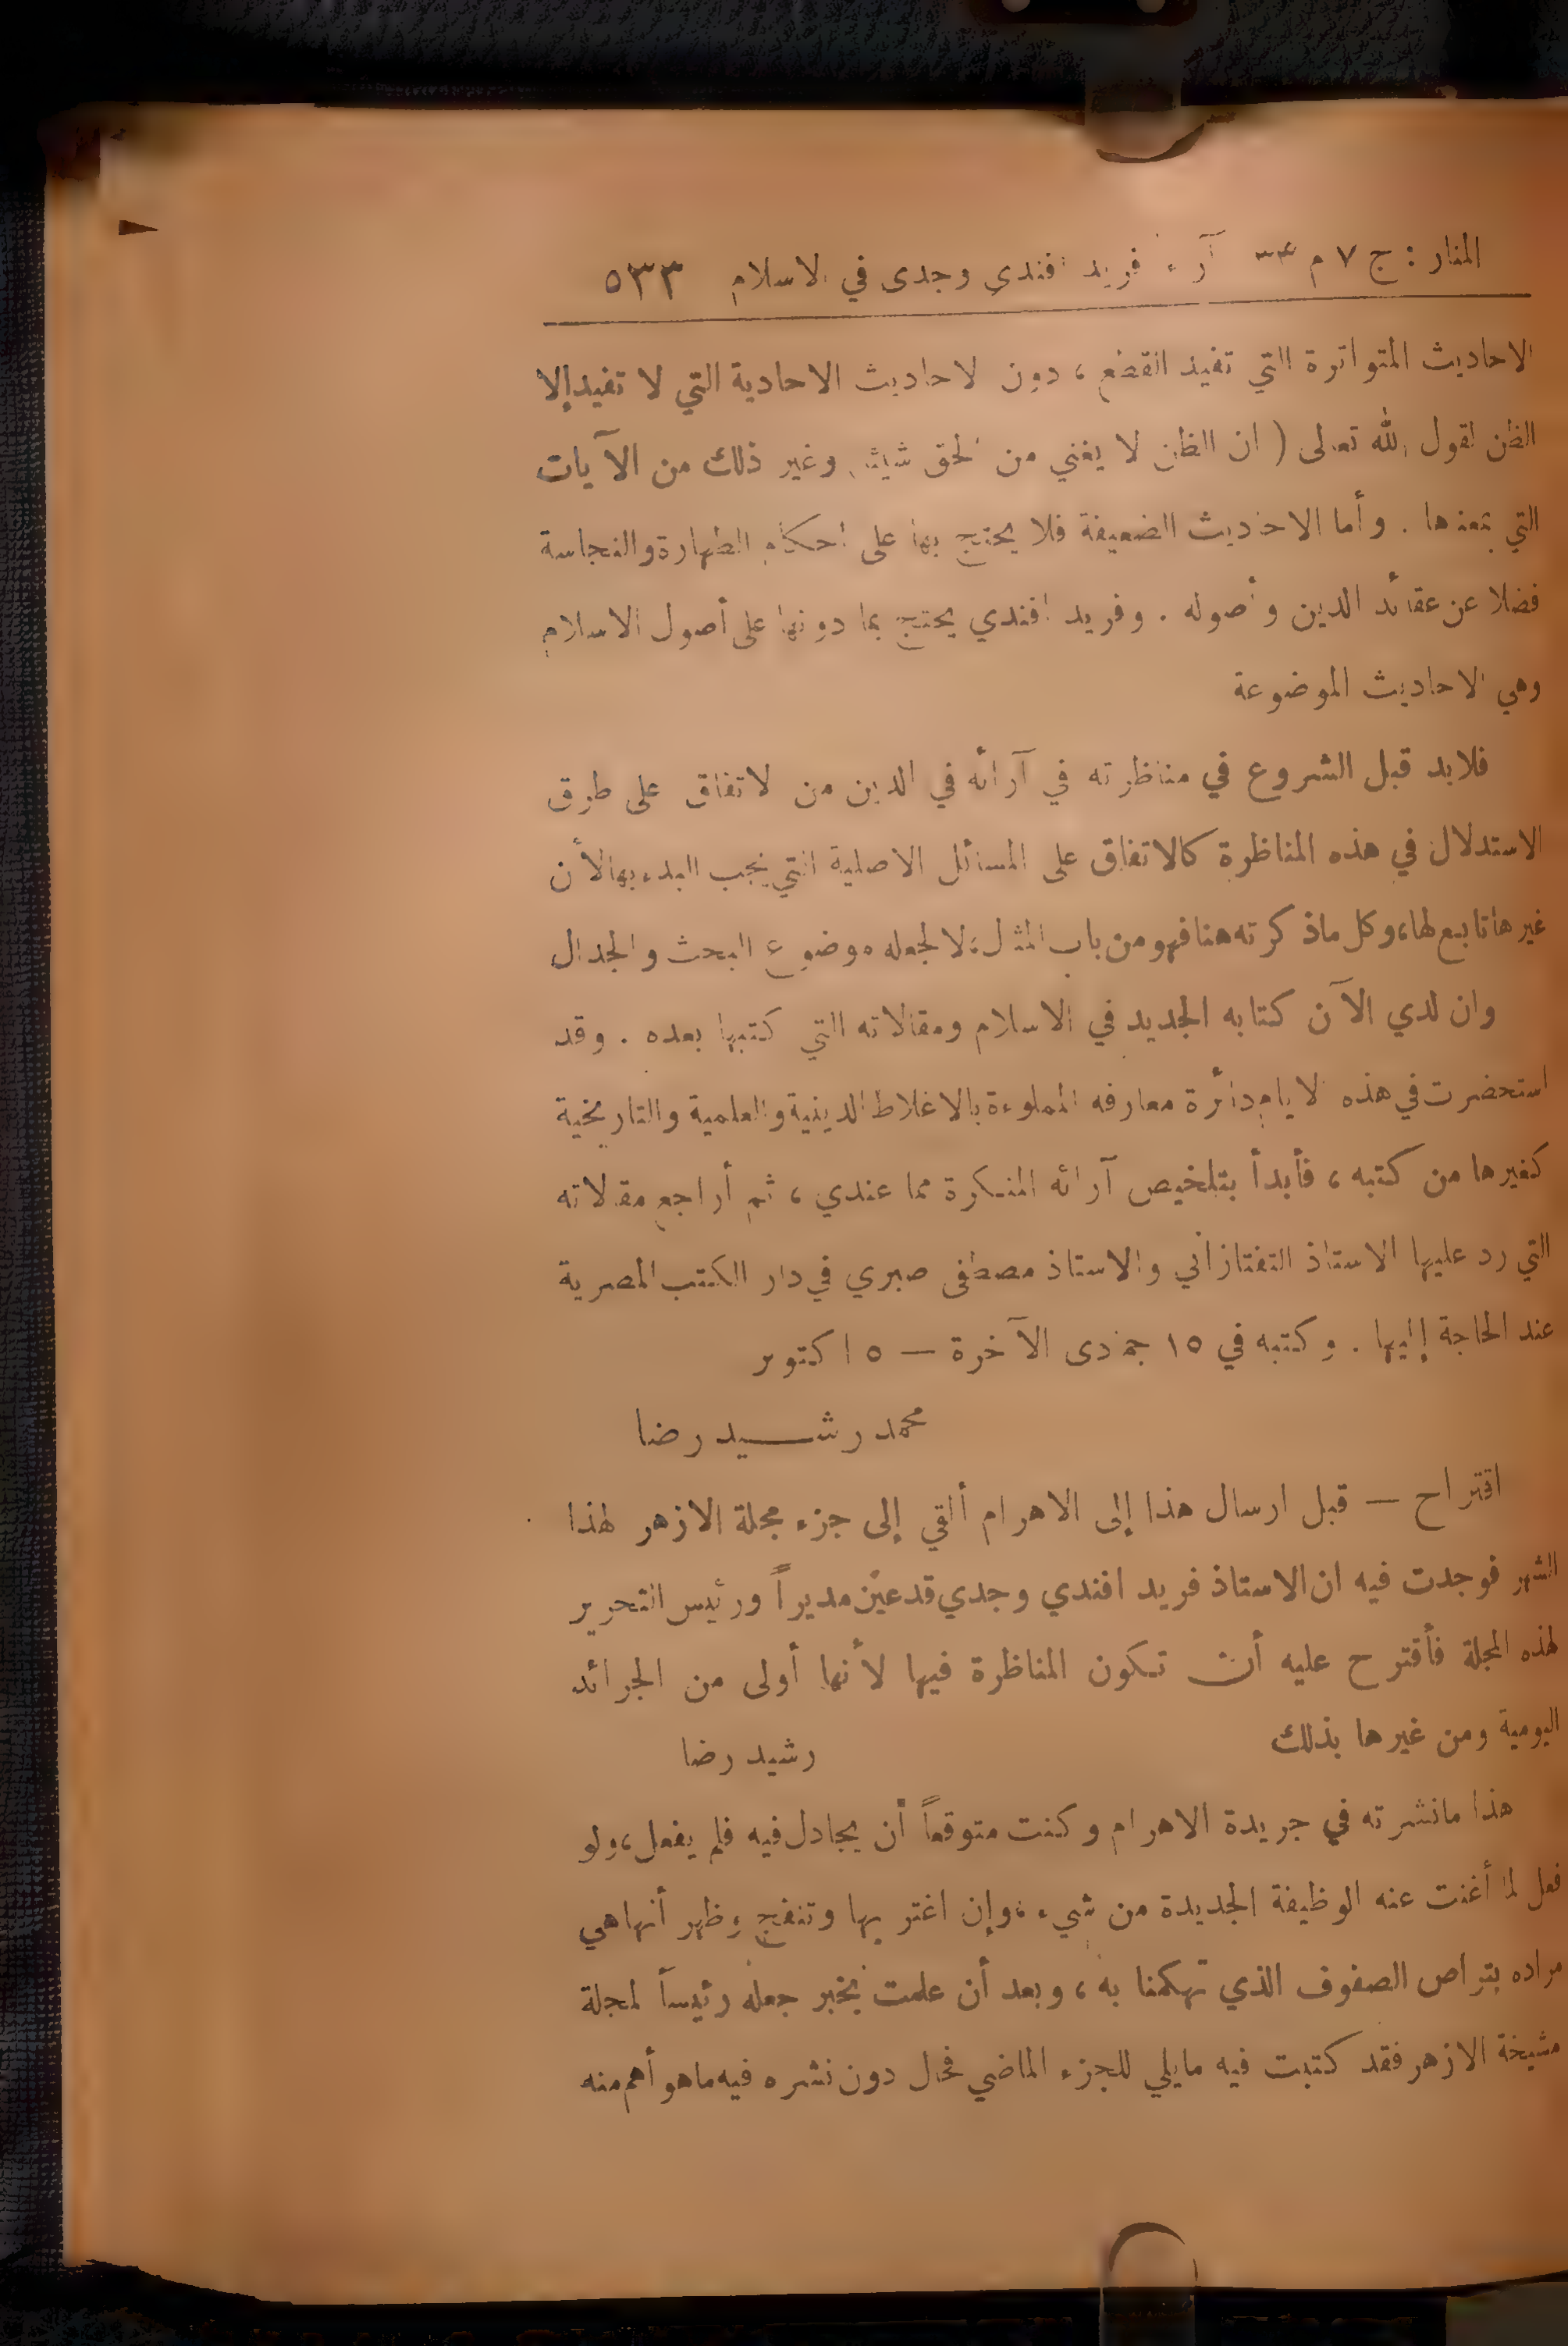 المنار : ج ٧ م ٣٣ آراء فريد افندي وجدى في الاسلام ٥٣٣
الاحاديث المتواترة التي تفيد القطع ، دون الاحاديث الاحادية التي لا تفيد إلا
الظن لقول الله تعالى ( ان الظن لا يغني من الحق شيئا) وغير ذلك من الآيات
التي بمعناها . وأما الاحاديث الضعيفة فلا يحتج بها على احكام الطهارة والنجاسة
فضلا عن عقائد الدين وأصوله . وفريد افندي يحتج بما دونها على أصول الاسلام
وهي الاحاديث الموضوعة
فلابد قبل الشروع في مناظرته في آرائه في الدين من الاتفاق على طرق
الاستدلال في هذه المناظرة كالاتفاق على المسائل الاصلية التي يجب البدء بها لأن
غيرها تابع لها، وكل ماذكرته هنا فهو من باب المثال، لا لجعله موضوع البحث والجدال
وان لدي الآن كتابه الجديد في الاسلام ومقالاته التي كتبها بعده . وقد
استحضرت في هذه الايام دائرة معارفه المملوءة بالاغلاط الدينية والعلمية والتاريخية
كغيرها من كتبه ، فأبدأ بتلخيص آرائه المنكرة مما عندي ، ثم أراجع مقالاته
التي رد عليها الاستاذ التفتازاني والاستاذ مصطفى صبري في دار الكتب المصرية
عند الحاجة إليها . وكتبه في ١٥ جمادى الآخرة — ٥ اكتوبر
محمد رشـــيد رضا
اقتراح — قبل ارسال هذا إلى الاهرام ألقي إلى جزء مجلة الازهر لهذا
الشهر فوجدت فيه ان الاستاذ فريد افندي وجدي قد عيّن مديراً ورئيس التحرير
لهذه المجلة فأقترح عليه أن تكون المناظرة فيها لأنها أولى من الجرائد
اليومية ومن غيرها بذلك رشيد رضا
هذا مانشرته في جريدة الاهرام وكنت متوقعاً أن يجادل فيه فلم يفعل، ولو
فعل لما أغنت عنه الوظيفة الجديدة من شيء ، وإن اغتر بها وتنفج وظهر أنها هي
مراده بتراص الصفوف الذي تهكمنا به ، وبعد أن علمت بخبر جعله رئيساً لمجلة
مشيخة الازهر فقد كتبت فيه مايلي للجزء الماضي فحال دون نشره فيه ماهو أهم منه